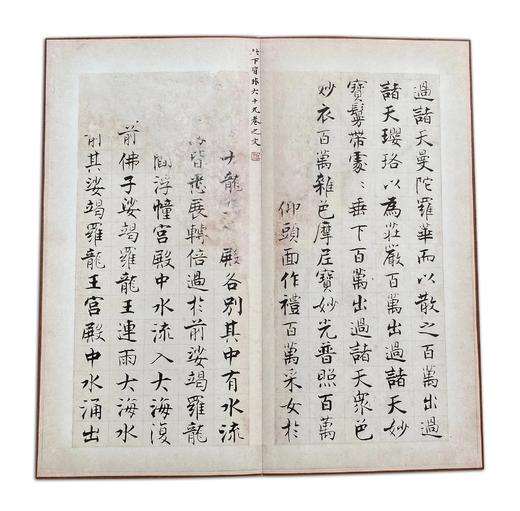 過諸天曼陀羅華而以散之百萬出過
諸天瓔珞以為莊嚴百萬出過諸天妙
寶鬘帶䨥〻垂下百萬出過諸天眾色
妙衣百萬雜色摩尼寶妙光普照百萬
仰頭面作禮百萬采女於
以下寶珠六十九卷之文
大龍 殿各別其中有水流
皆悉展轉倍過於前娑竭羅龍
閻浮幢宮殿中水流入大海復
前佛子娑竭羅龍王連雨大海水
前其娑竭羅龍王宮殿中水涌出